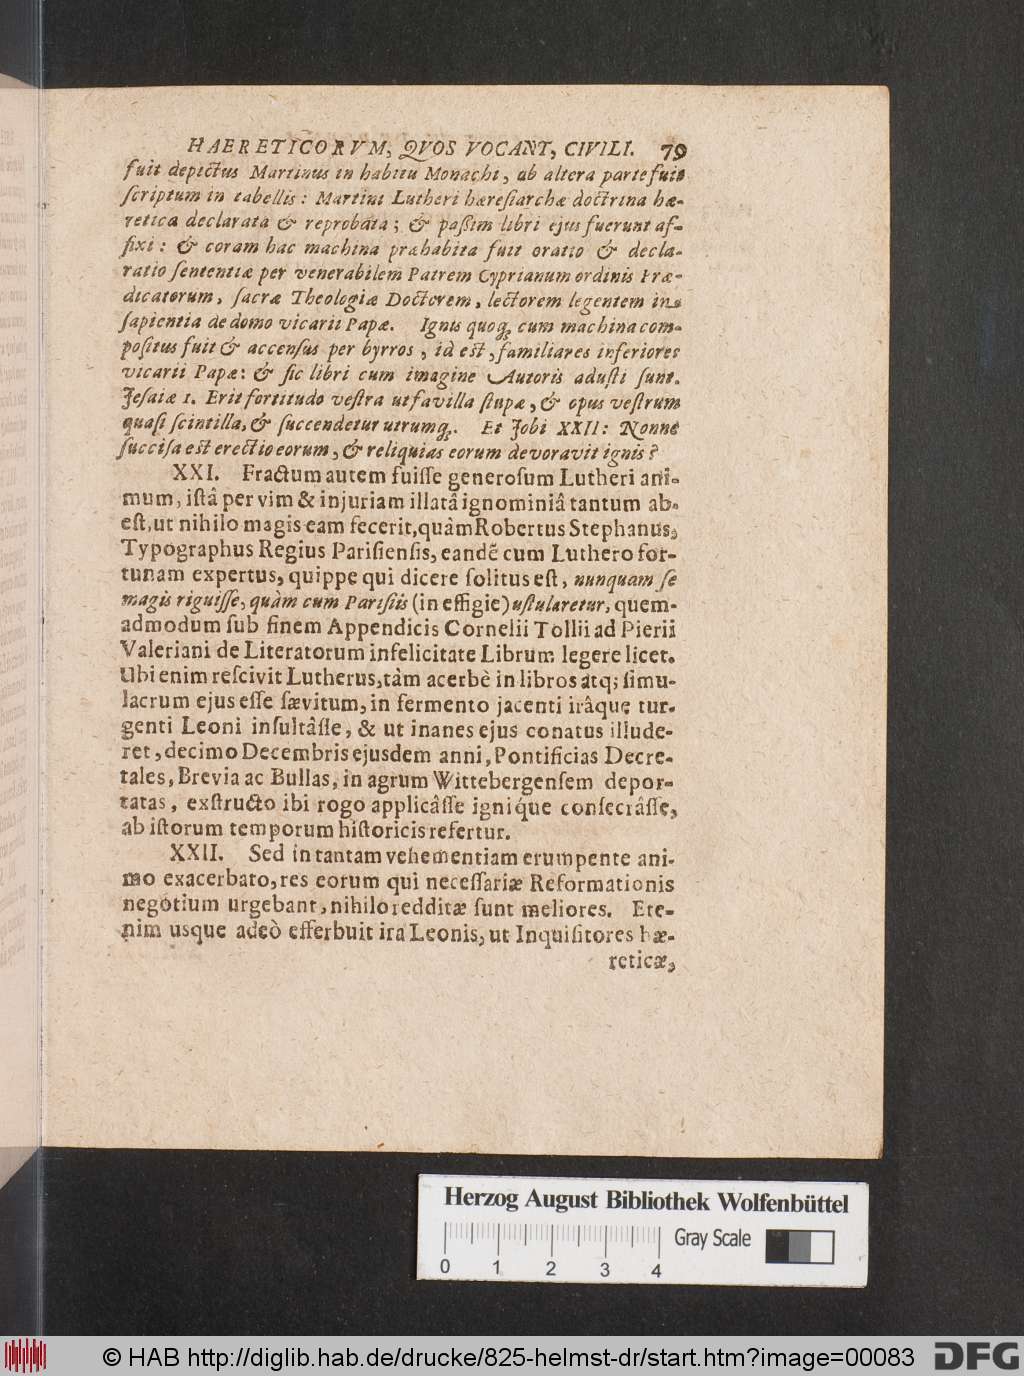 HAERETICORVM, QVOS VOCANT, CIVILI. 79
fuit depictus Martinus in habitu Monachi, ab altera parte fuit
ſcriptum in tabellis: Martini Lutheri hæreſiarchæ doctrina hæ-
retica declarata & reprobata; & paßim libri ejus fuerunt af-
fixi: & coram hac machina præhabita fuit oratio & decla-
ratio ſententiæ per venerabilem Patrem Cyprianum ordinis Præ-
dicatorum, ſacræ Theologiæ Doctorem, lectorem legentem in
ſapientia de domo vicarii Papæ. Ignis quoq; cum machina com-
poſitus fuit & accenſus per byrros, id eſt, familiares inferiores
vicarii Papæ: & ſic libri cum imagine Autoris aduſti ſunt.
Jeſaiæ 1. Erit fortitudo veſtra ut favilla ſtupæ, & opus veſtrum
quaſi ſcintilla, & ſuccendetur utrumq;. Et Jobi XXII: Nonne
ſucciſa eſt erectio eorum, & reliquias eorum devoravit ignis?
XXI. Fractum autem fuiſſe generoſum Lutheri ani-
mum, iſtâ per vim & injuriam illatâ ignominiâ tantum ab-
eſt, ut nihilo magis eam fecerit, quàm Robertus Stephanus,
Typographus Regius Pariſienſis, eandē cum Luthero for-
tunam expertus, quippe qui dicere ſolitus eſt, nunquam ſe
magis riguiſſe, quàm cum Pariſiis (in effigie) uſtularetur, quem-
admodum ſub finem Appendicis Cornelii Tollii ad Pierii
Valeriani de Literatorum infelicitate Librum legere licet.
Ubi enim reſcivit Lutherus, tàm acerbè in libros atq; ſimu-
lacrum ejus eſſe ſævitum, in fermento jacenti irâque tur-
genti Leoni inſultâſſe, & ut inanes ejus conatus illude-
ret, decimo Decembris ejusdem anni, Pontificias Decre-
tales, Brevia ac Bullas, in agrum Wittebergenſem depor-
tatas, exſtructo ibi rogo applicâſſe ignique conſecrâſſe,
ab iſtorum temporum hiſtoricis refertur.
XXII. Sed in tantam vehementiam erumpente ani-
mo exacerbato, res eorum qui neceſſariæ Reformationis
negotium urgebant, nihilo redditæ ſunt meliores. Ete-
nim usque adeò efferbuit ira Leonis, ut Inquiſitores hæ-
reticæ,
Herzog August Bibliothek Wolfenbüttel
Gray Scale
0 1 2 3 4
© HAB http://diglib.hab.de/drucke/825-helmst-dr/start.htm?image=00083
DFG